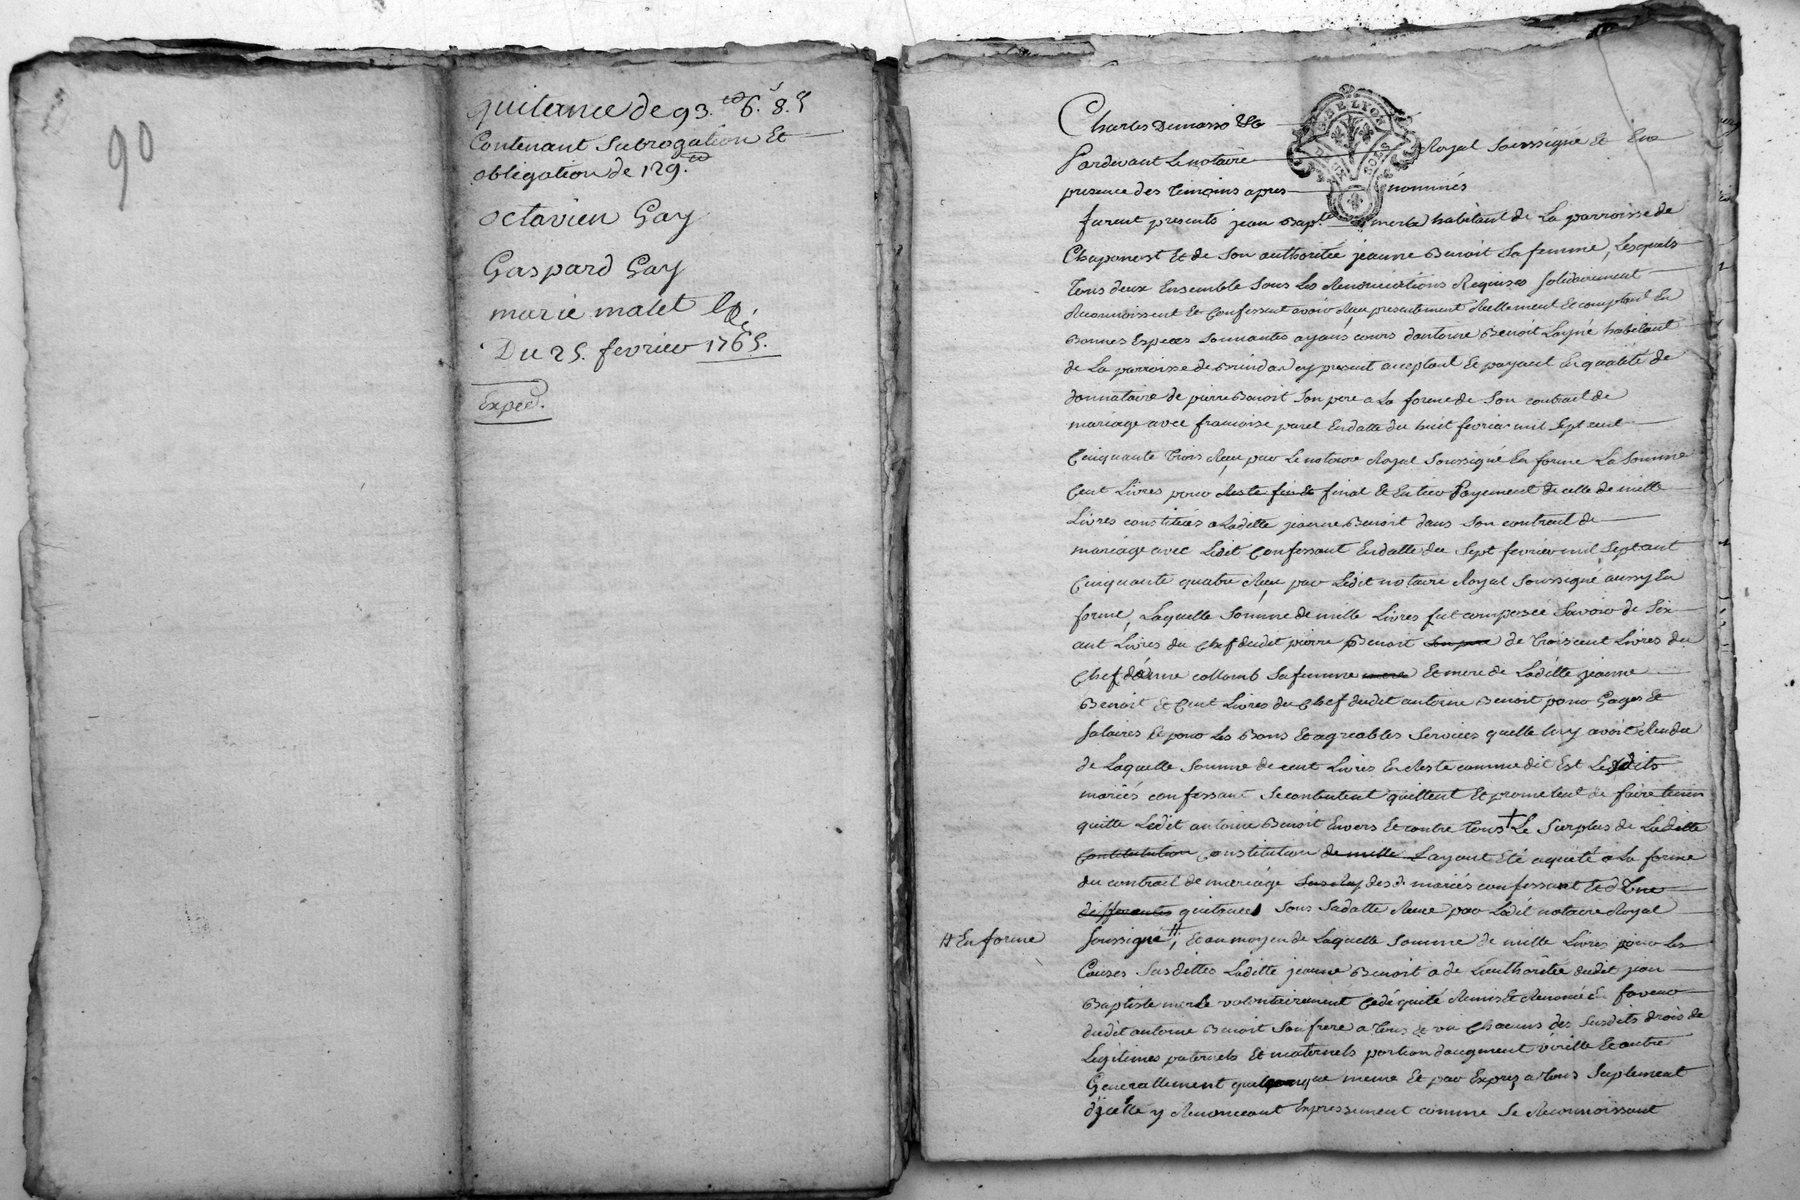 90
quitance de 93.ᵗᵗ 6.ˢ 8.ᵈ
Contenant Subrogation Et
obligation de 129.ᵗᵗ
octavien Gay
Gaspard Gay
marie malet
Du 25. fevrier 1765.
Exped.
Charles Demasso &c
Pardevant Le notaire Royal Soussigné Et En
presence des temoins apres nommés
furent presents jean Bap.te merle habitant de La parroisse de
Chaponost Et de Son authoritée jeanne Benoit Sa femme, Lesquels
tous deux Ensemble Sous Les Renonciations Requises Solidairement
Reconnoissent Et Confessent avoir Reçu presentement Reellement Et comptant En
Bonnes Especes Sonnantes ayans cours dantoine Benoit Layné habitant
de La parroisse de Brindas cy present acceptant Et payant En qualité de
donnataire de pierre Benoit Son pere a La forme de Son contrail de
mariage avec francoise parel En datte du huit fevrier mil Sept cent
Cinquante trois Reçu par Le notaire Royal Soussigné En forme La Somme
Cent Livres pour Reste fin Et final Et Entier Payement de celle de mille
Livres constituées a Laditte jeanne Benoit dans Son contrail de
mariage avec Ledit Confessant En datte du Sept fevrier mil Sept cent
Cinquante quatre Reçu par Ledit notaire Royal Soussigné aussy En
forme, Laquelle Somme de mille Livres fut composée Savoir de Six
cent Livres du Chef dudit pierre Benoit Son pere de trois cent Livres du
Chef danne collomb Sa femme mere Et mere de Laditte jeanne
Benoit Et Cent Livres du Chef dudit antoine Benoit pour Gages Et
Salaires Et pour Les Bons Et agreables Services quelle luy avoit Rendu
de Laquelle Somme de cent Livres En Reste comme dit Est Lesdits
mariés confessant Se contentent quittent Et promettent de faire tenir
quitte Ledit antoine Benoit Envers Et contre tous + Le Surplus de Laditte
Constitution Constitution de mille L ayant Eté aquité a La forme
du contrail de mariage des d. mariés confessant Et d'Une
differentes quitances Sous Sa datte Reçue par Ledit notaire Royal
# En forme
Soussigné #, Et au moyen de Laquelle Somme de mille Livres pour Les
Causes Susdittes Laditte jeanne Benoit a de Lauthoritée dudit jean
Baptiste merle volontairement Cedé quité Remis Et Renoncé En faveur
dudit antoine Benoit Son frere a tous Et un Chacuns des Susdits drois de
Legitimes paternels Et maternels portion daugment virille Et autre
Generallement quelconque meme Et par Exprez a tous Suplement
dycelle y Renonceant Expressement comme Se Reconnoissant